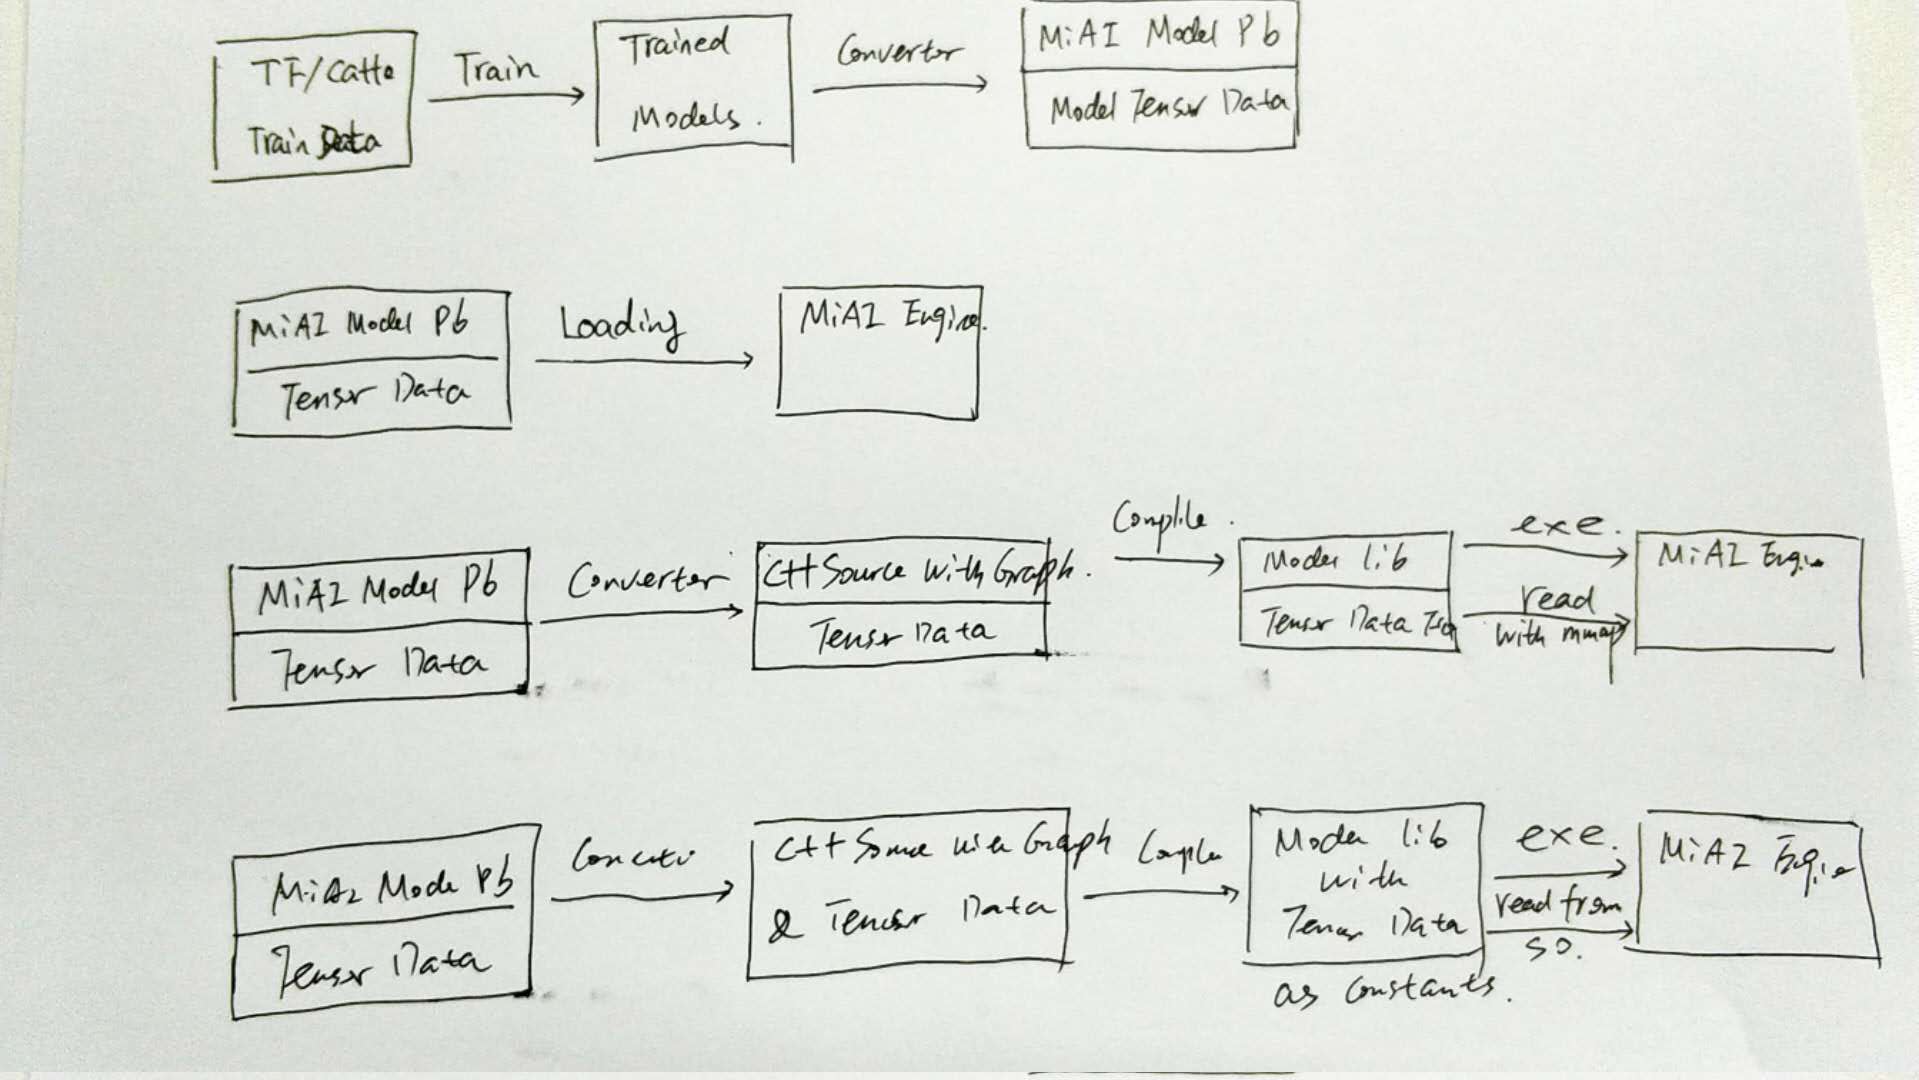 TF/Caffe
Train Data
Train
Trained
Models.
Convertor
MiAI Model Pb
Model Tensor Data
MiAI Model Pb
Tensor Data
Loading
MiAI Engine.
MiAI Model Pb
Tensor Data
Converter
C++ Source with Graph.
Tensor Data
Complile.
Model lib
Tensor Data
exe.
read
with mmap
MiAI Engine
MiAI Mode Pb
Tensor Data
C++ Source with Graph
& Tensor Data
Model lib
with
Tensor Data
as constants.
exe.
read from
so.
MiAI Engine